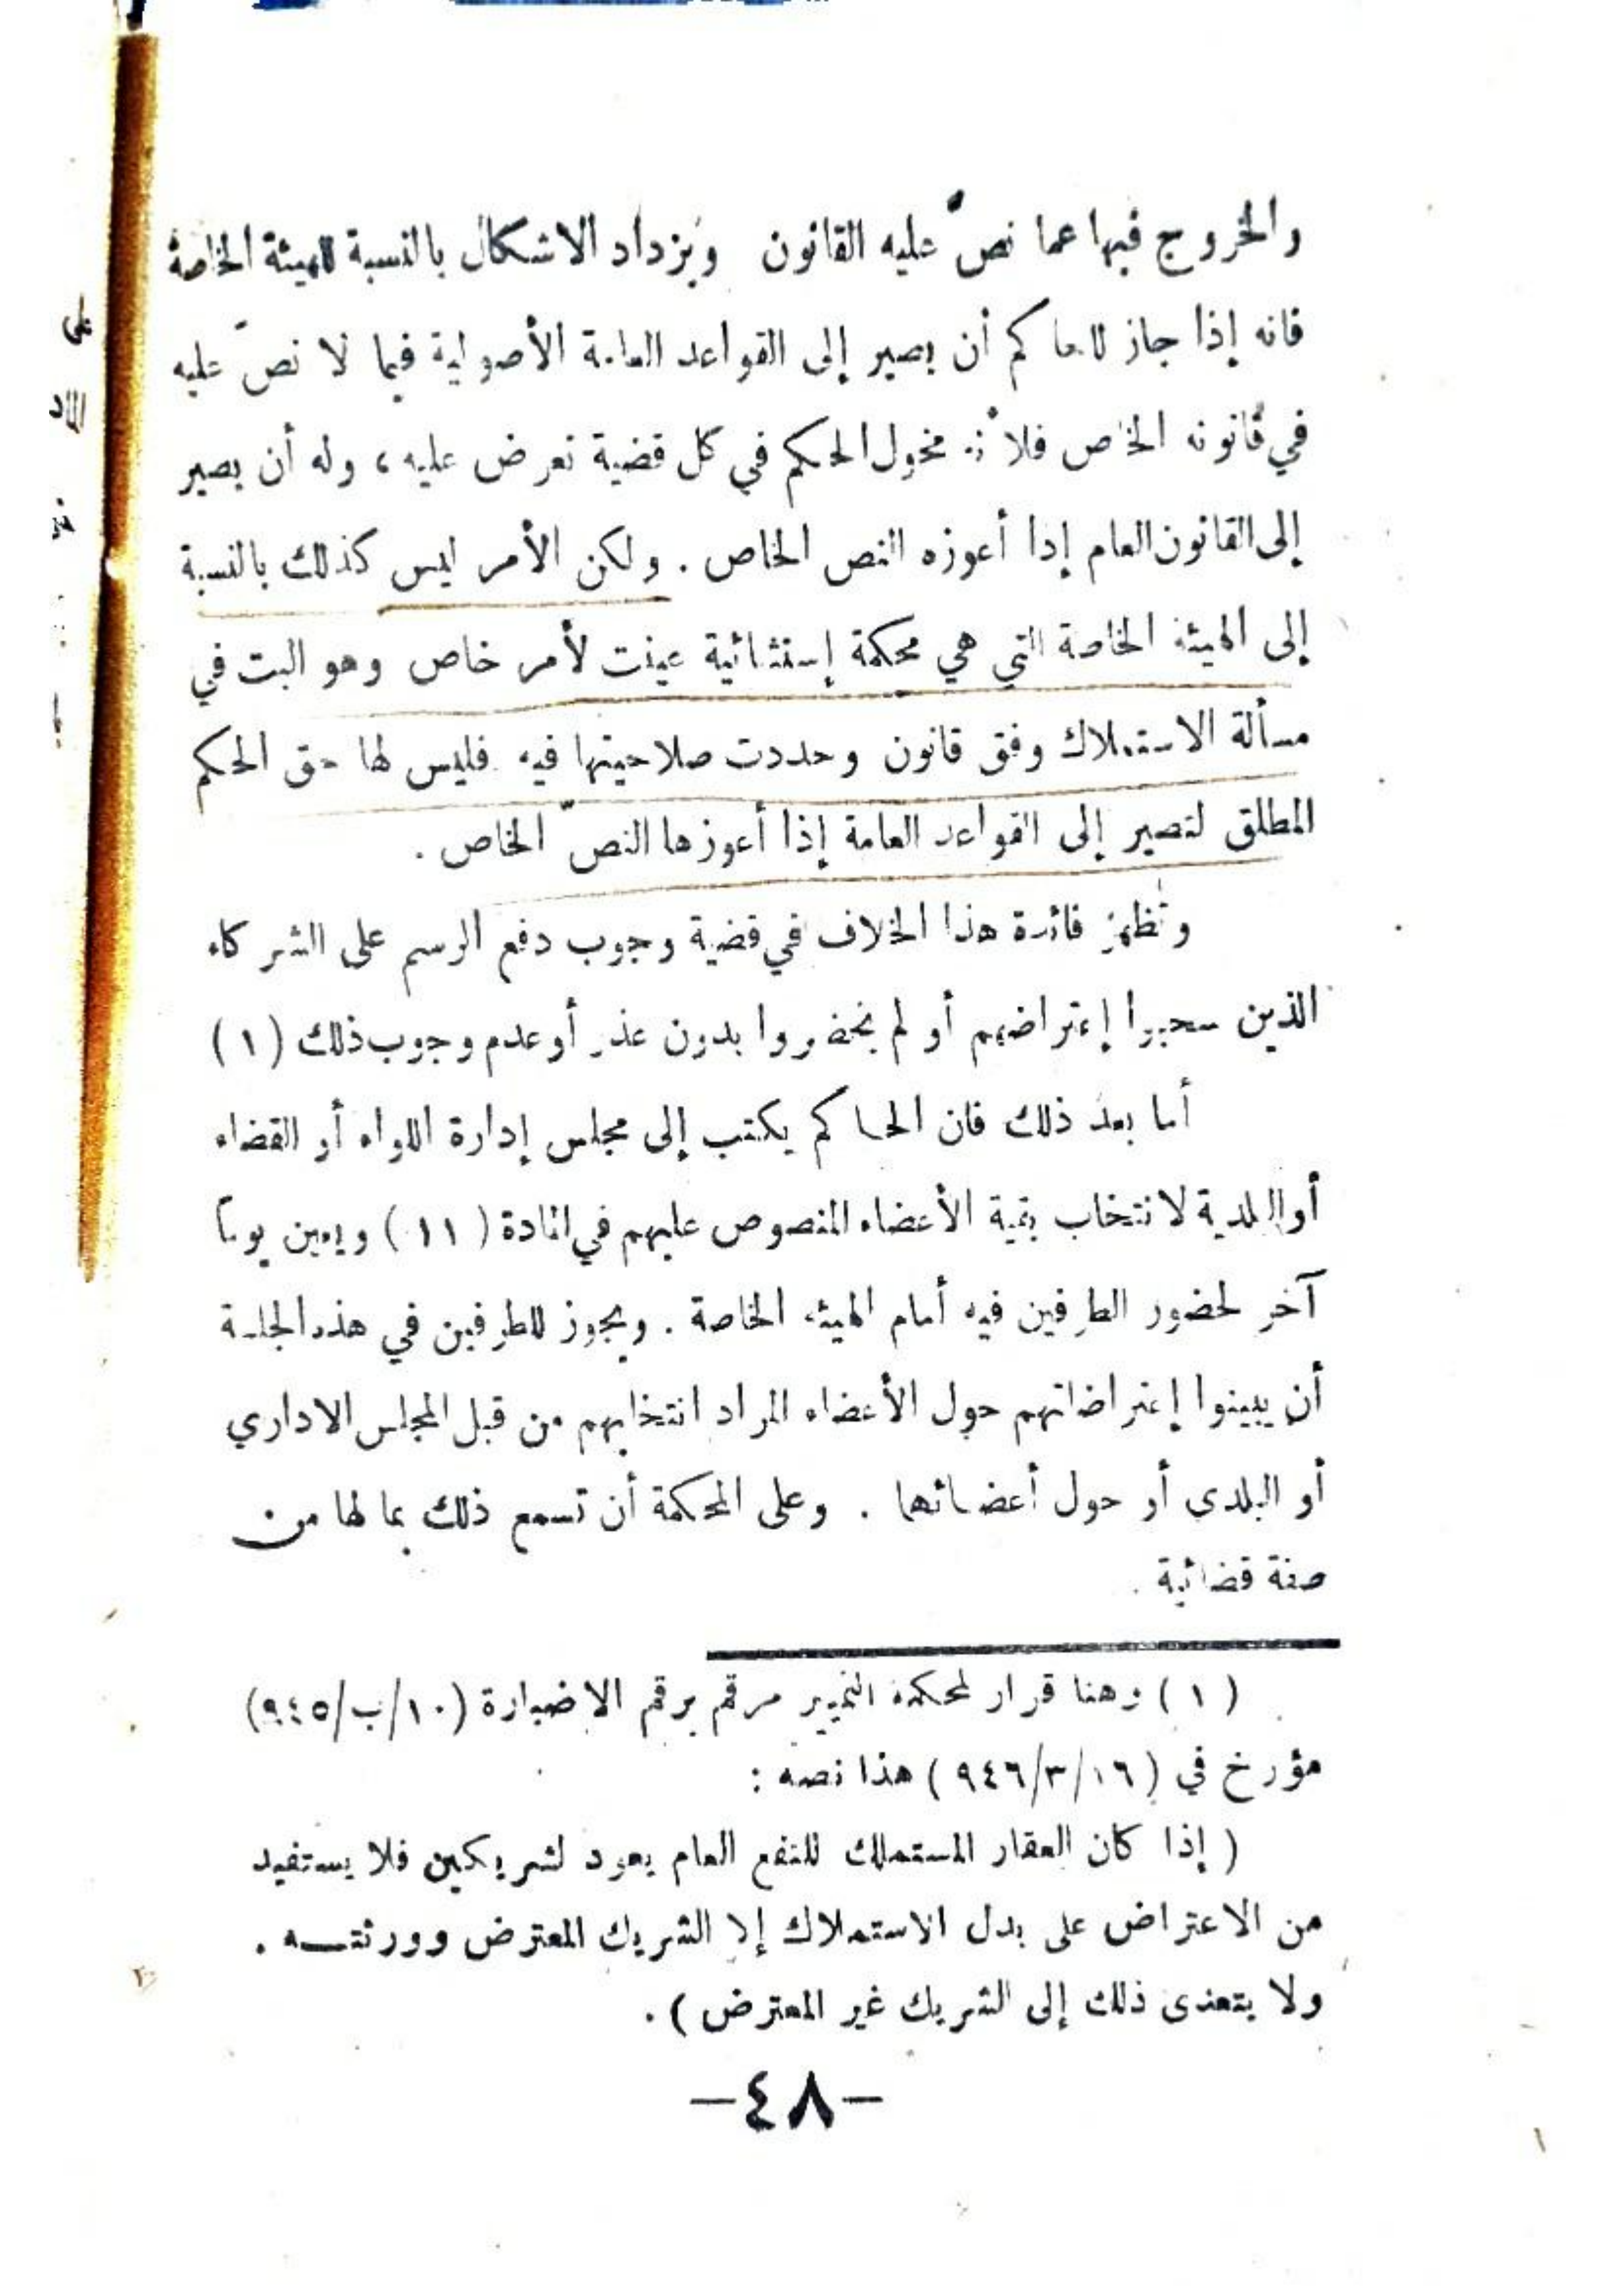 والخروج فيها عما نصّ عليه القانون ويزداد الاشكال بالنسبة للهيئة الخاصة
فانه إذا جاز للحاكم أن يصير إلى القواعد العامة الأصولية فيما لا نصّ عليه
في قانونه الخاص فلأنه مخول الحكم في كل قضية تعرض عليه، وله أن يصير
إلى القانون العام إذا أعوزه النص الخاص. ولكن الأمر ليس كذلك بالنسبة
إلى الهيئة الخاصة التي هي محكمة إستثنائية عينت لأمر خاص وهو البت في
مسألة الاستملاك وفق قانون وحددت صلاحيتها فيه فليس لها حق الحكم
المطلق لتصير إلى القواعد العامة إذا أعوزها النصّ الخاص.
وتظهر فائدة هذا الخلاف في قضية وجوب دفع الرسم على الشركاء
الذين سحبوا إعتراضهم أو لم يحضروا بدون عذر أو عدم وجوب ذلك (١)
أما بعد ذلك فان الحاكم يكتب إلى مجلس إدارة اللواء أو القضاء
أو البلدية لانتخاب بقية الأعضاء المنصوص عليهم في المادة (١١) ويعين يوماً
آخر لحضور الطرفين فيه أمام الهيئة الخاصة. ويجوز للطرفين في هذه الجلسة
أن يبينوا إعتراضاتهم حول الأعضاء المراد انتخابهم من قبل المجلس الاداري
أو البلدي أو حول أعضائها. وعلى المحكمة أن تسمع ذلك بما لها من
صفة قضائية.
(١) وهنا قرار لمحكمة التمييز مرقم برقم الاضبارة (١٠/ب/٩٤٥)
مؤرخ في (٩٤٦/٣/١٦) هذا نصه:
(إذا كان العقار المستملك للنفع العام يعود لشريكين فلا يستفيد
من الاعتراض على بدل الاستملاك إلا الشريك المعترض وورثته.
ولا يتعدى ذلك إلى الشريك غير المعترض).
—٤٨—